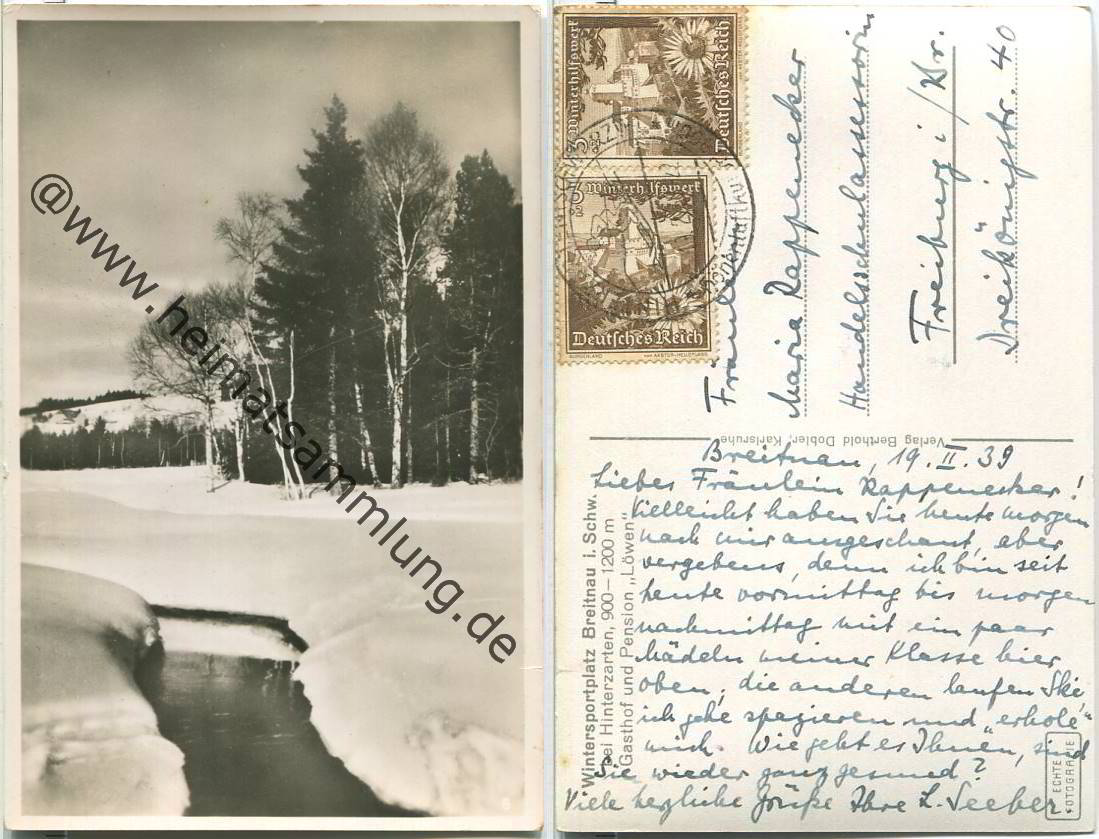 @www.heimatsammlung.de
6
Winterhilfswerk
Deutsches Reich
3
Winterhilfswerk
3
Deutsches Reich
Fräulein
Maria Rappenecker
Handelsschulassessorin
Freiburg i/Br.
Dreikönigstr. 40
Verlag Berthold Dobler, Karlsruhe
Wintersportplatz Breitnau i. Schw.
bei Hinterzarten, 900–1200 m
Gasthof und Pension „Löwen"
Breitnau, 19. II. 39
Liebes Fräulein Rappenecker!
Vielleicht haben Sie heute morgen
nach mir ausgeschaut, aber
vergebens, denn ich bin seit
heute vormittag bis morgen
nachmittag mit ein paar
Mädeln meiner Klasse hier
oben; die anderen laufen Ski,
ich gehe spazieren und „erhole"
mich. Wie geht es Ihnen, sind
Sie wieder ganz gesund?
Viele herzliche Grüße Ihre L. Seeber.
ECHTE
FOTOGRAFIE